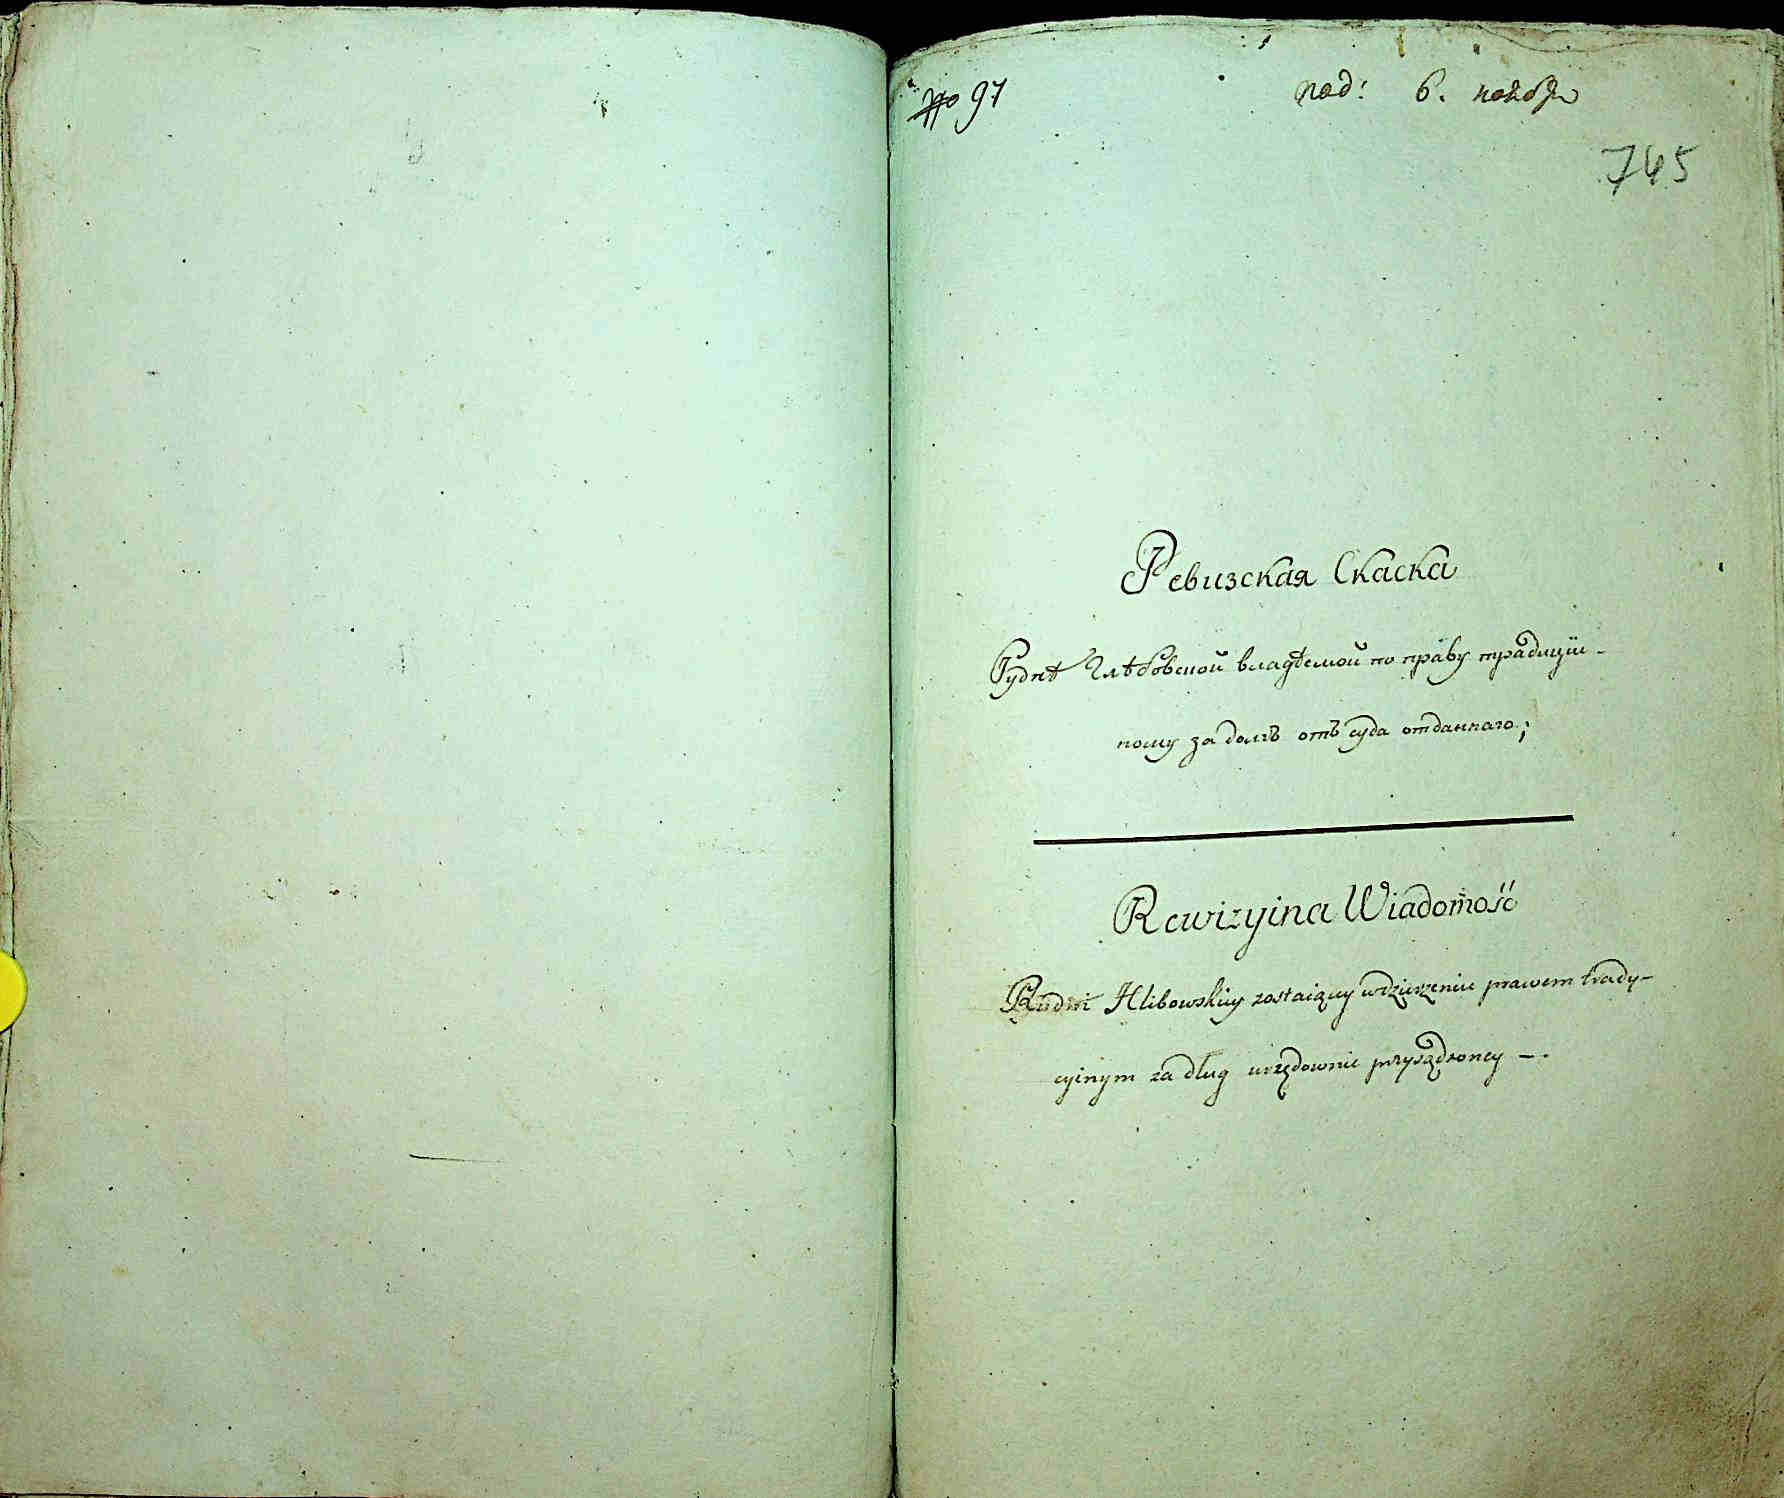 № 97
под: 6. ноября
745
Ревизская Скаска
Рудне Глѣбовской владѣемой по праву традиціи-
ному за долгъ отъ суда отданнаго;
Rewizyina Wiadomość
Rudni Hlibowskiey zostaiącey w dzierżeniu prawem trady-
cyinym za dług urzędownie przysądzoney —.